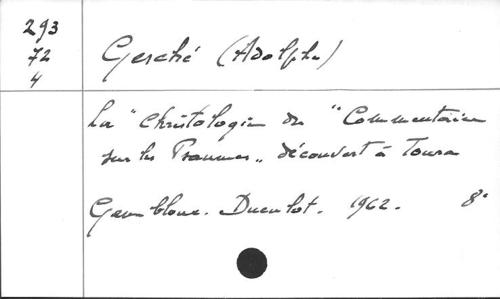 293
72
4
Gesché (Adolphe)
La "christologie du "Commentaire
sur les Psaumes„ découvert à Toura
Gembloux. Duculot. 1962. 8°